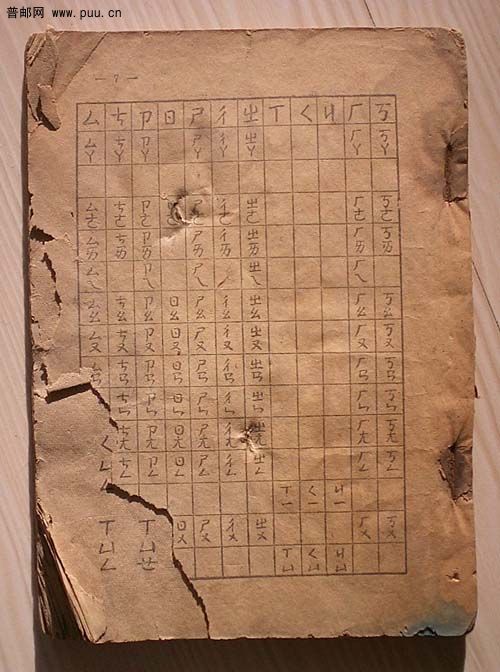 普邮网 www.puu.cn
— 7 —
ㄎ ㄎㄚ ㄎㄜ ㄎㄞ ㄎㄠ ㄎㄡ ㄎㄢ ㄎㄣ ㄎㄤ ㄎㄥ ㄎㄨ
ㄏ ㄏㄚ ㄏㄜ ㄏㄞ ㄏㄟ ㄏㄠ ㄏㄡ ㄏㄢ ㄏㄣ ㄏㄤ ㄏㄥ ㄏㄨ
ㄐ ㄐㄧ ㄐㄩ
ㄑ ㄑㄧ ㄑㄩ
ㄒ ㄒㄧ ㄒㄩ
ㄓ ㄓㄚ ㄓㄜ ㄓㄞ ㄓㄟ ㄓㄠ ㄓㄡ ㄓㄢ ㄓㄣ ㄓㄤ ㄓㄥ ㄓㄨ
ㄔ ㄔㄚ ㄔㄜ ㄔㄞ ㄔㄠ ㄔㄡ ㄔㄢ ㄔㄣ ㄔㄤ ㄔㄥ ㄔㄨ
ㄕ ㄕㄚ ㄕㄜ ㄕㄞ ㄕㄟ ㄕㄠ ㄕㄡ ㄕㄢ ㄕㄣ ㄕㄤ ㄕㄥ ㄕㄨ
ㄖ ㄖㄠ ㄖㄡ ㄖㄢ ㄖㄣ ㄖㄤ ㄖㄥ ㄖㄨ
ㄗ ㄗㄚ ㄗㄜ ㄗㄞ ㄗㄟ ㄗㄠ ㄗㄡ ㄗㄢ ㄗㄣ ㄗㄤ ㄗㄥ
ㄒㄩㄝ
ㄘ ㄘㄚ ㄘㄜ ㄘㄞ ㄘㄠ ㄘㄡ ㄘㄢ ㄘㄣ ㄘㄤ ㄘㄥ
ㄙ ㄙㄚ ㄙㄜ ㄙㄞ ㄙㄟ ㄙㄠ ㄙㄡ ㄙㄢ
ㄑㄩㄥ
ㄒㄩㄥ